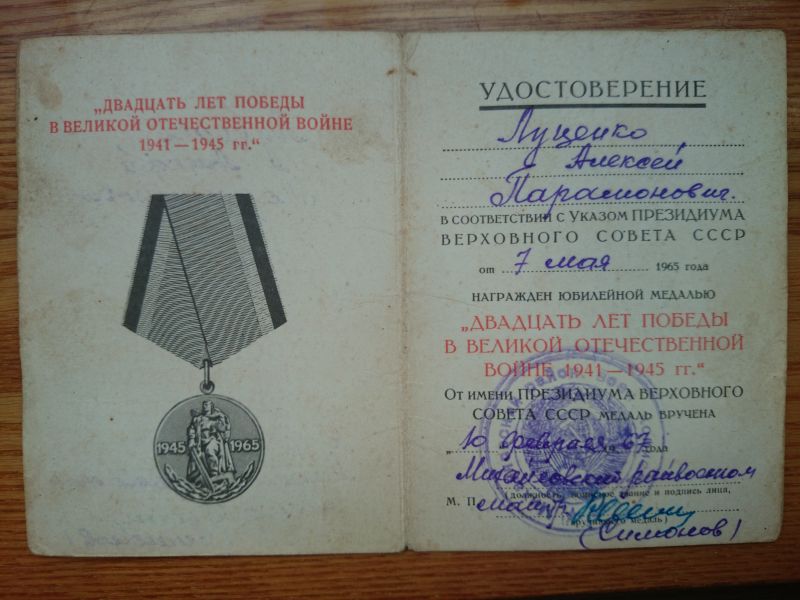 „ДВАДЦАТЬ ЛЕТ ПОБЕДЫ
В ВЕЛИКОЙ ОТЕЧЕСТВЕННОЙ ВОЙНЕ
1941 — 1945 гг.“
1945 1965
УДОСТОВЕРЕНИЕ
Луценко
Алексей
Парамонович.
В СООТВЕТСТВИИ С УКАЗОМ ПРЕЗИДИУМА
ВЕРХОВНОГО СОВЕТА СССР
от 7 мая 1965 года
НАГРАЖДЕН ЮБИЛЕЙНОЙ МЕДАЛЬЮ
„ДВАДЦАТЬ ЛЕТ ПОБЕДЫ
В ВЕЛИКОЙ ОТЕЧЕСТВЕННОЙ
ВОЙНЕ 1941 — 1945 гг.“
От имени ПРЕЗИДИУМА ВЕРХОВНОГО
СОВЕТА СССР МЕДАЛЬ ВРУЧЕНА
„10 февраля 1967 года
Михайловский райвоенком
(должность, воинское звание и подпись лица,
М. П. майор
вручившего медаль)
(Симонов)